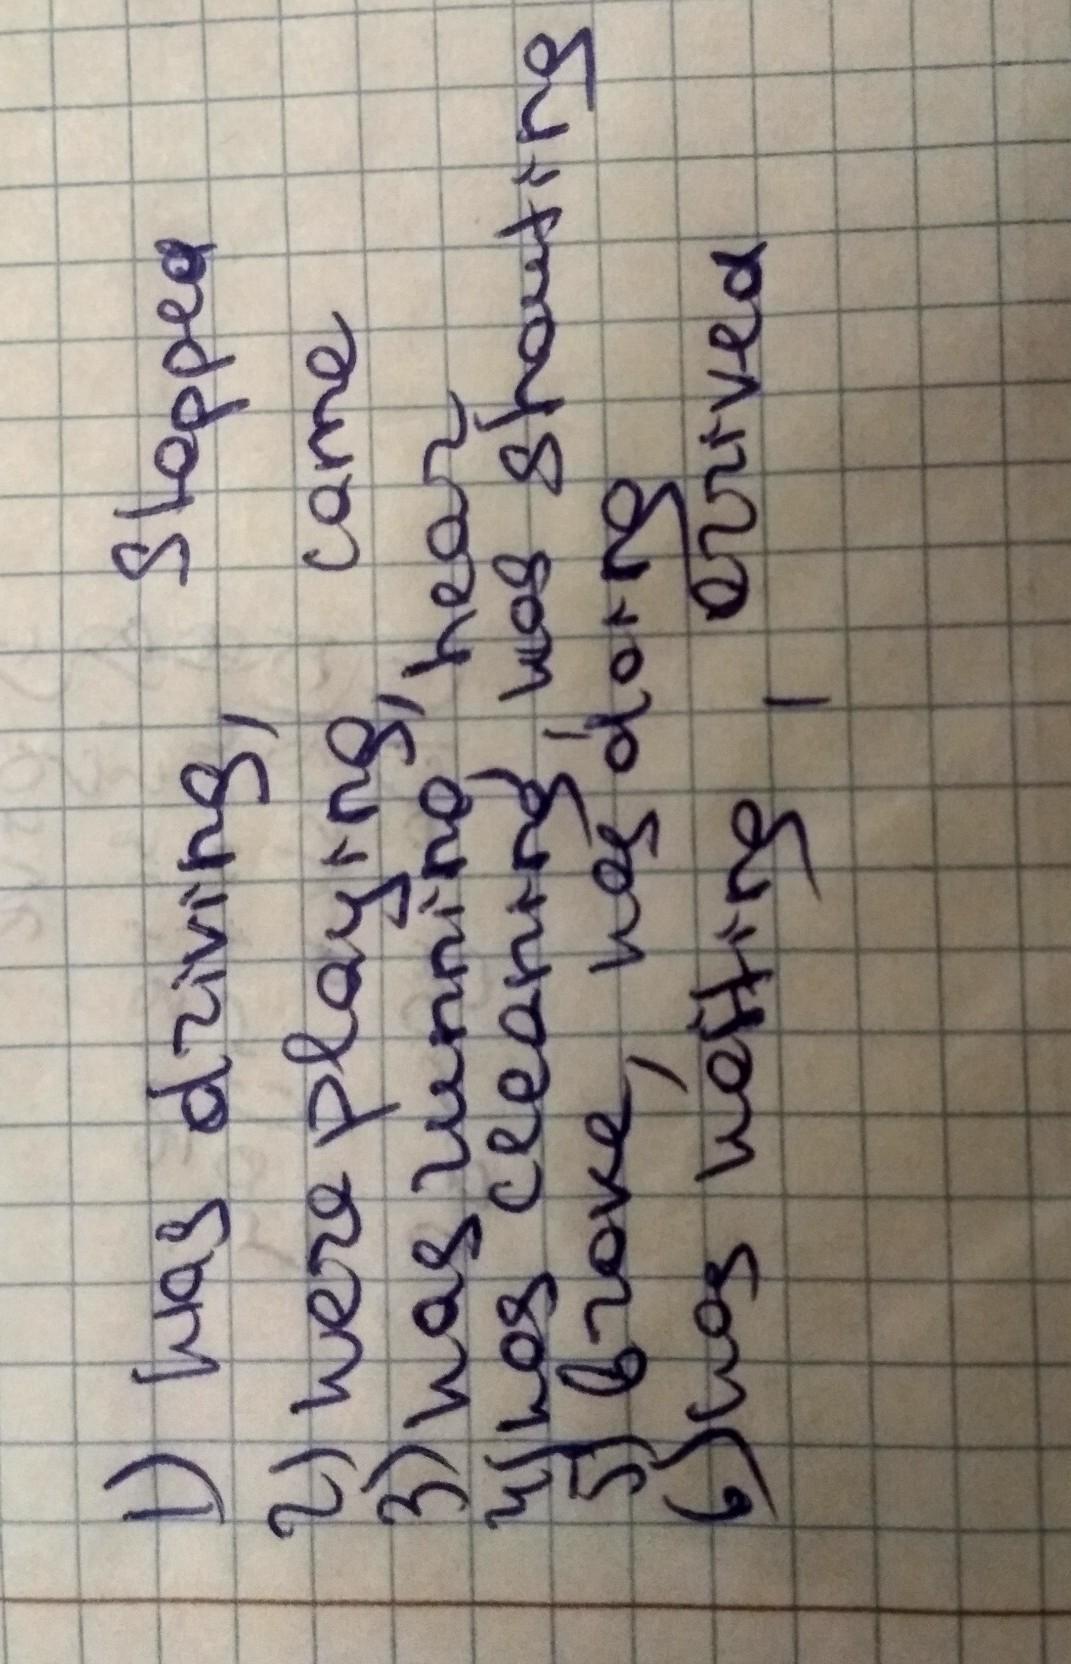 1) was driving, stopped
2) were playing, came
3) was running, hear
4) was cleaning, was shouting
5) broke, was doing
6) was waiting, erived